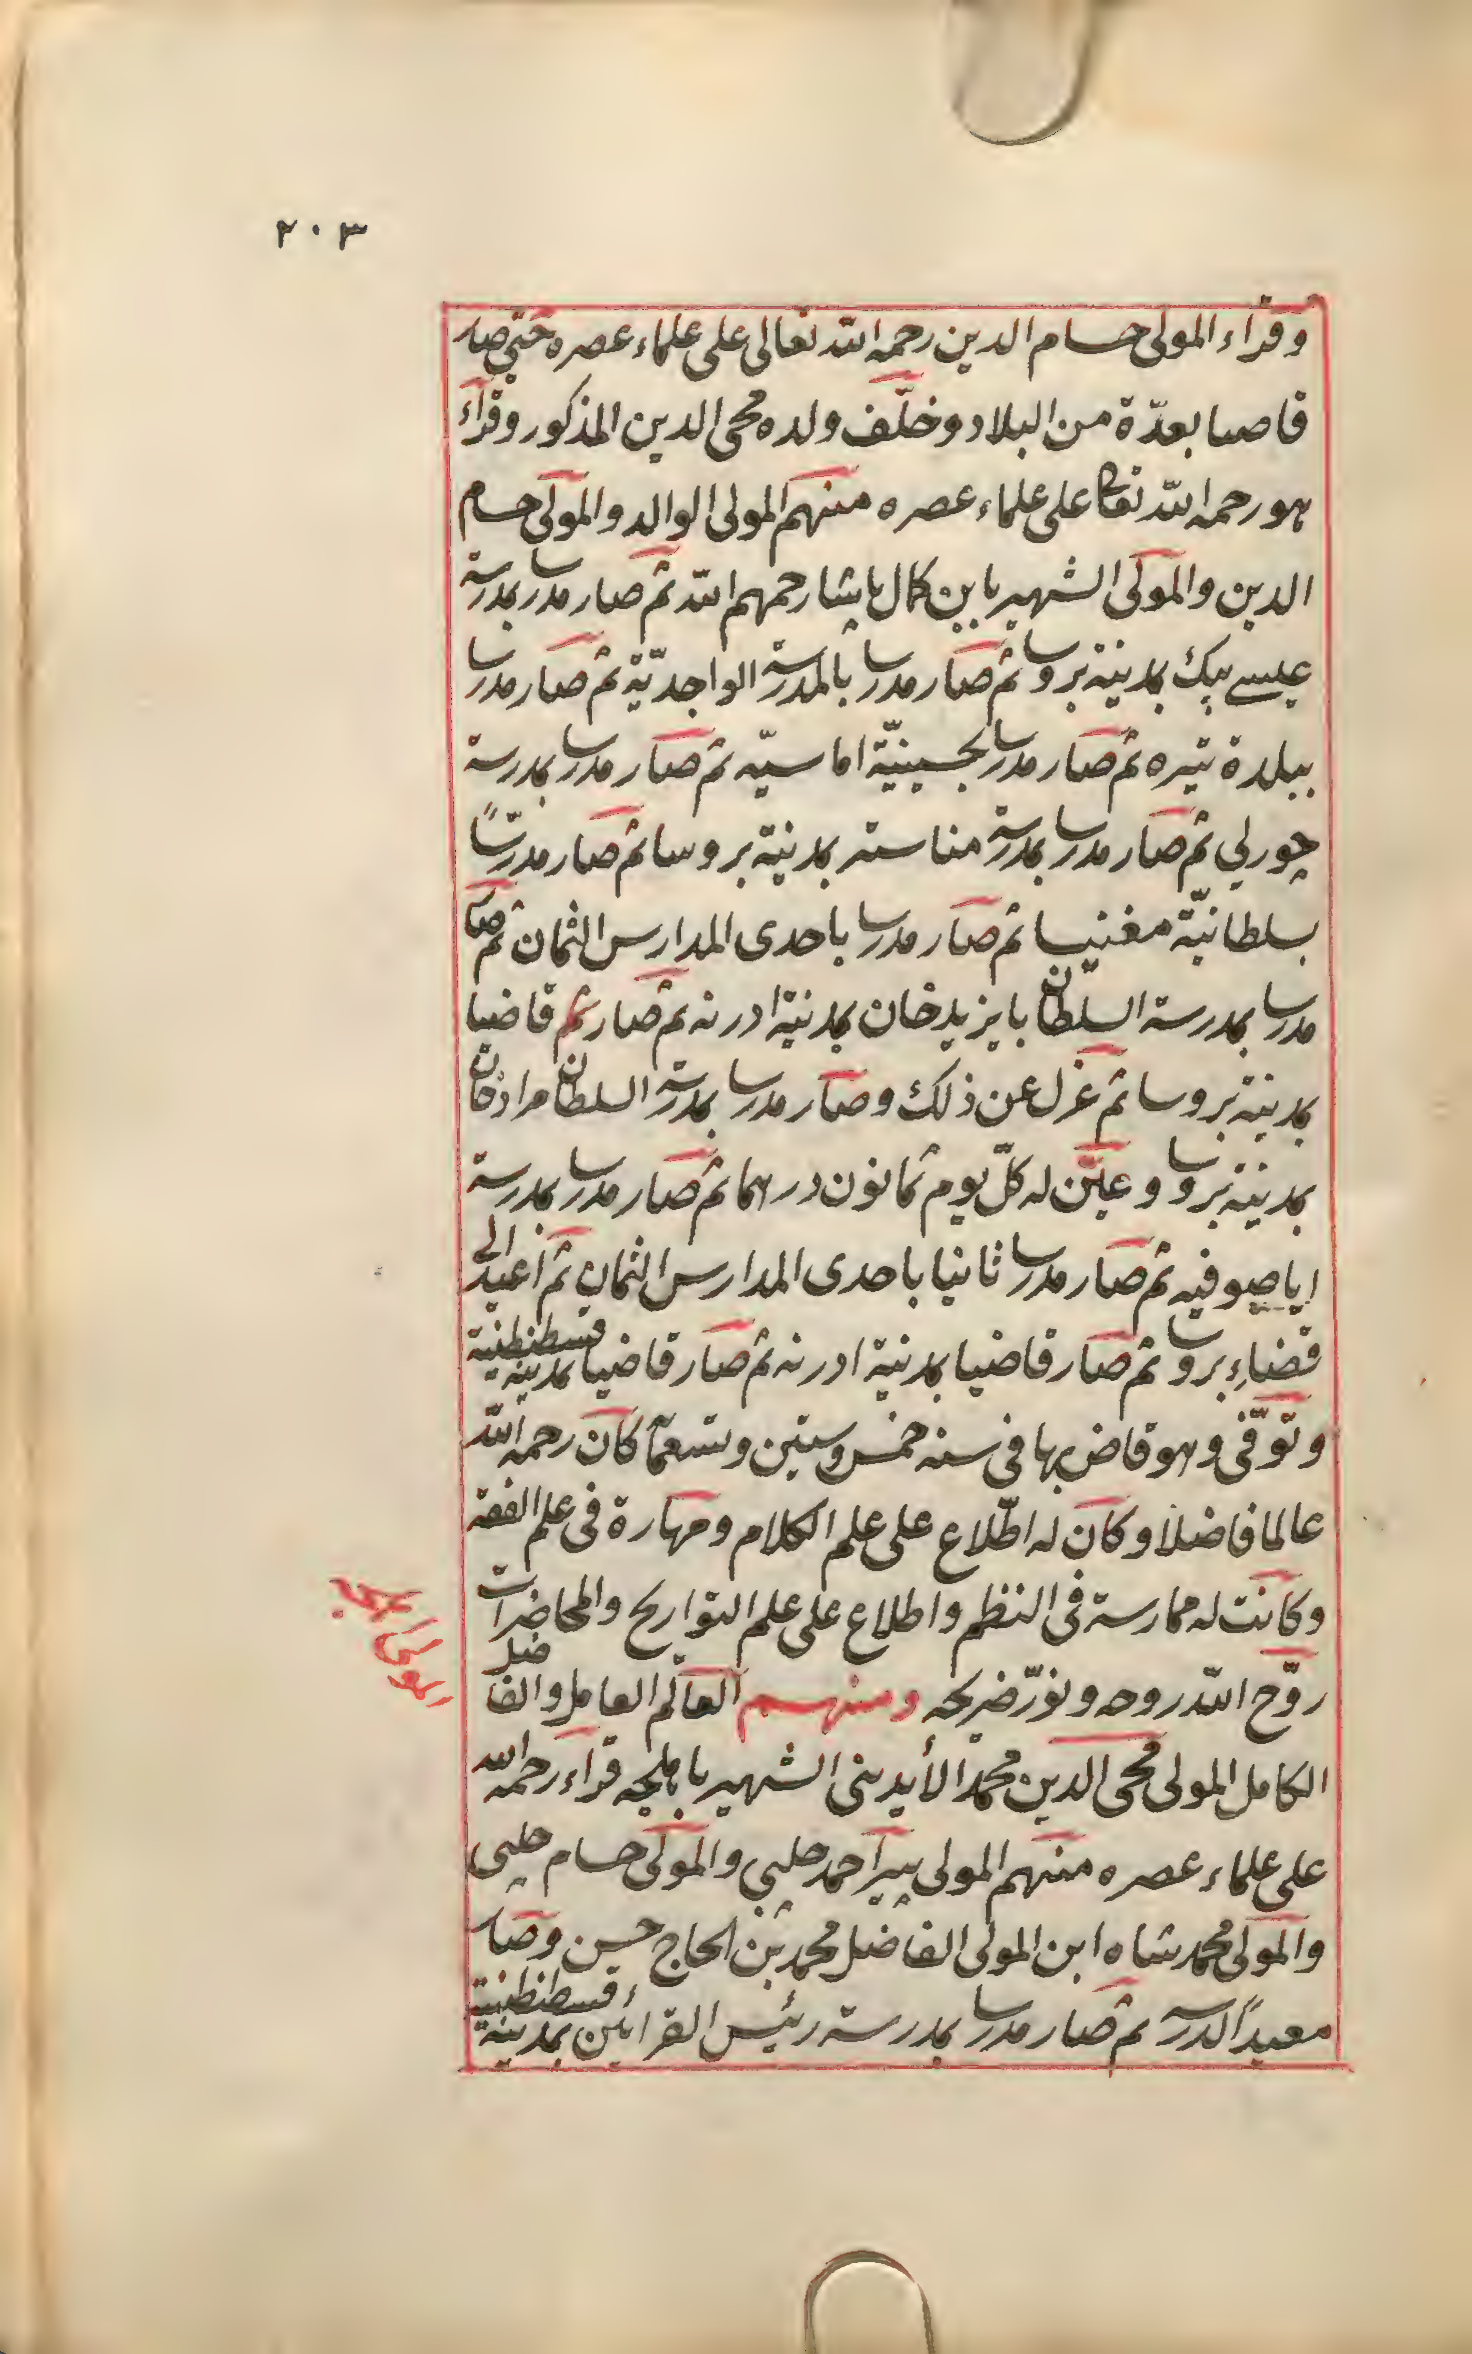 ٢٠٣
وقراء المولى حسام الدين رحمه الله تعالى على علماء عصره حتى صار
قاضيا بعدّة من البلاد وخلّف ولده محيى الدين المذكور وقرأ
هو رحمه الله تعالى على علماء عصره منهم المولى الوالد والمولى حسام
الدين والمولى الشهير بابن كمال پاشا رحمهم الله ثم صار مدرسا بمدرسة
عيسى بيك بمدينة بروسا ثم صار مدرسا بالمدرسة الواجديّة ثم صار مدرسا
ببلدة تيره ثم صار مدرسا بحسينيّة اماسيّه ثم صار مدرسا بمدرسة
چورلي ثم صار مدرسا بمدرسة مناستر بمدينة بروسا ثم صار مدرّسًا
بسلطانيّة مغنيسا ثم صار مدرسا باحدى المدارس الثمان ثم صار
مدرسا بمدرسة السلطان بايزيد خان بمدينة ادرنه ثم صار ثم قاضيا
بمدينة بروسا ثم عزل عن ذلك وصار مدرسا بمدرسة السلطان مراد خان
بمدينة بروسا وعيّن له كلّ يوم ثمانون درهما ثم صار مدرسا بمدرسة
اياصوفيه ثم صار مدرسا ثانيا باحدى المدارس الثمان ثم اعيد الى
قضاء بروسا ثم صار قاضيا بمدينة ادرنه ثم صار قاضيا بمدينة قسطنطنية
وتوفّى وهو قاض بها فى سنه خمس وستين وتسعمأ كان رحمه الله
عالما فاضلا وكان له اطّلاع على علم الكلام ومهارة فى علم الفقه
وكانت له ممارسة فى النظم واطلاع على علم التواريخ والمحاضرات
روّح الله روحه ونوّر ضريحه ومنهم العالم العامل والفاضل
الكامل المولى محيى الدين محمد الأيدينى الشهير باهلجه قراء رحمه الله
على علماء عصره منهم المولى پير احمد چلبي والمولى حسام چلبي
والمولى محمد شاه ابن المولى الفاضل محمد بن الحاج حسن وصار
معيدًا لدرسه ثم صار مدرسا بمدرسة رئيس القرايين بمدينة قسطنطنية
المولى